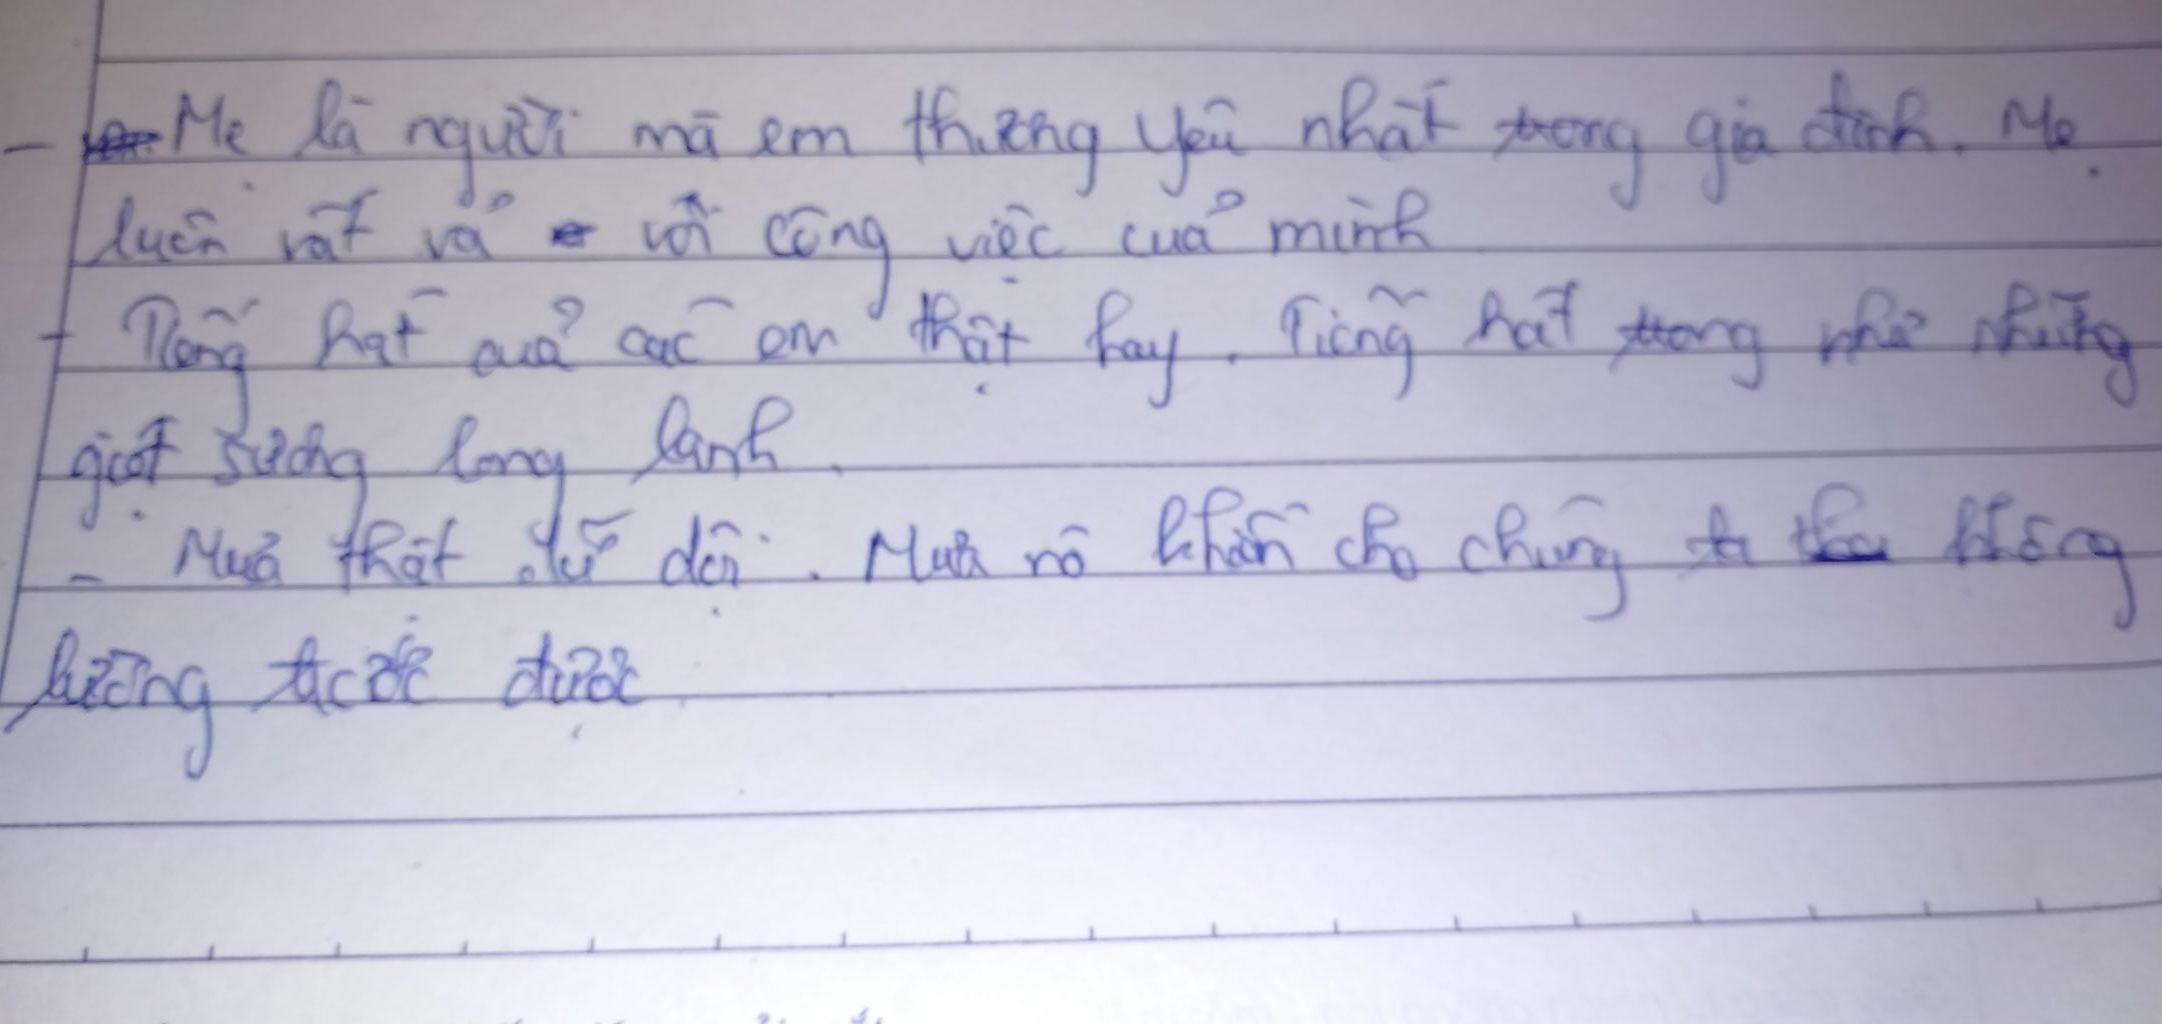 - Mẹ là người mà em thương yêu nhất trong gia đình. Mẹ
luôn vất vả với công việc của mình
- Tiếng hát của các em thật hay. Tiếng hát trong như những
giọt sương long lanh.
- Mưa thật dữ dội. Mưa nó khiến cho chúng ta không
lường trước được.